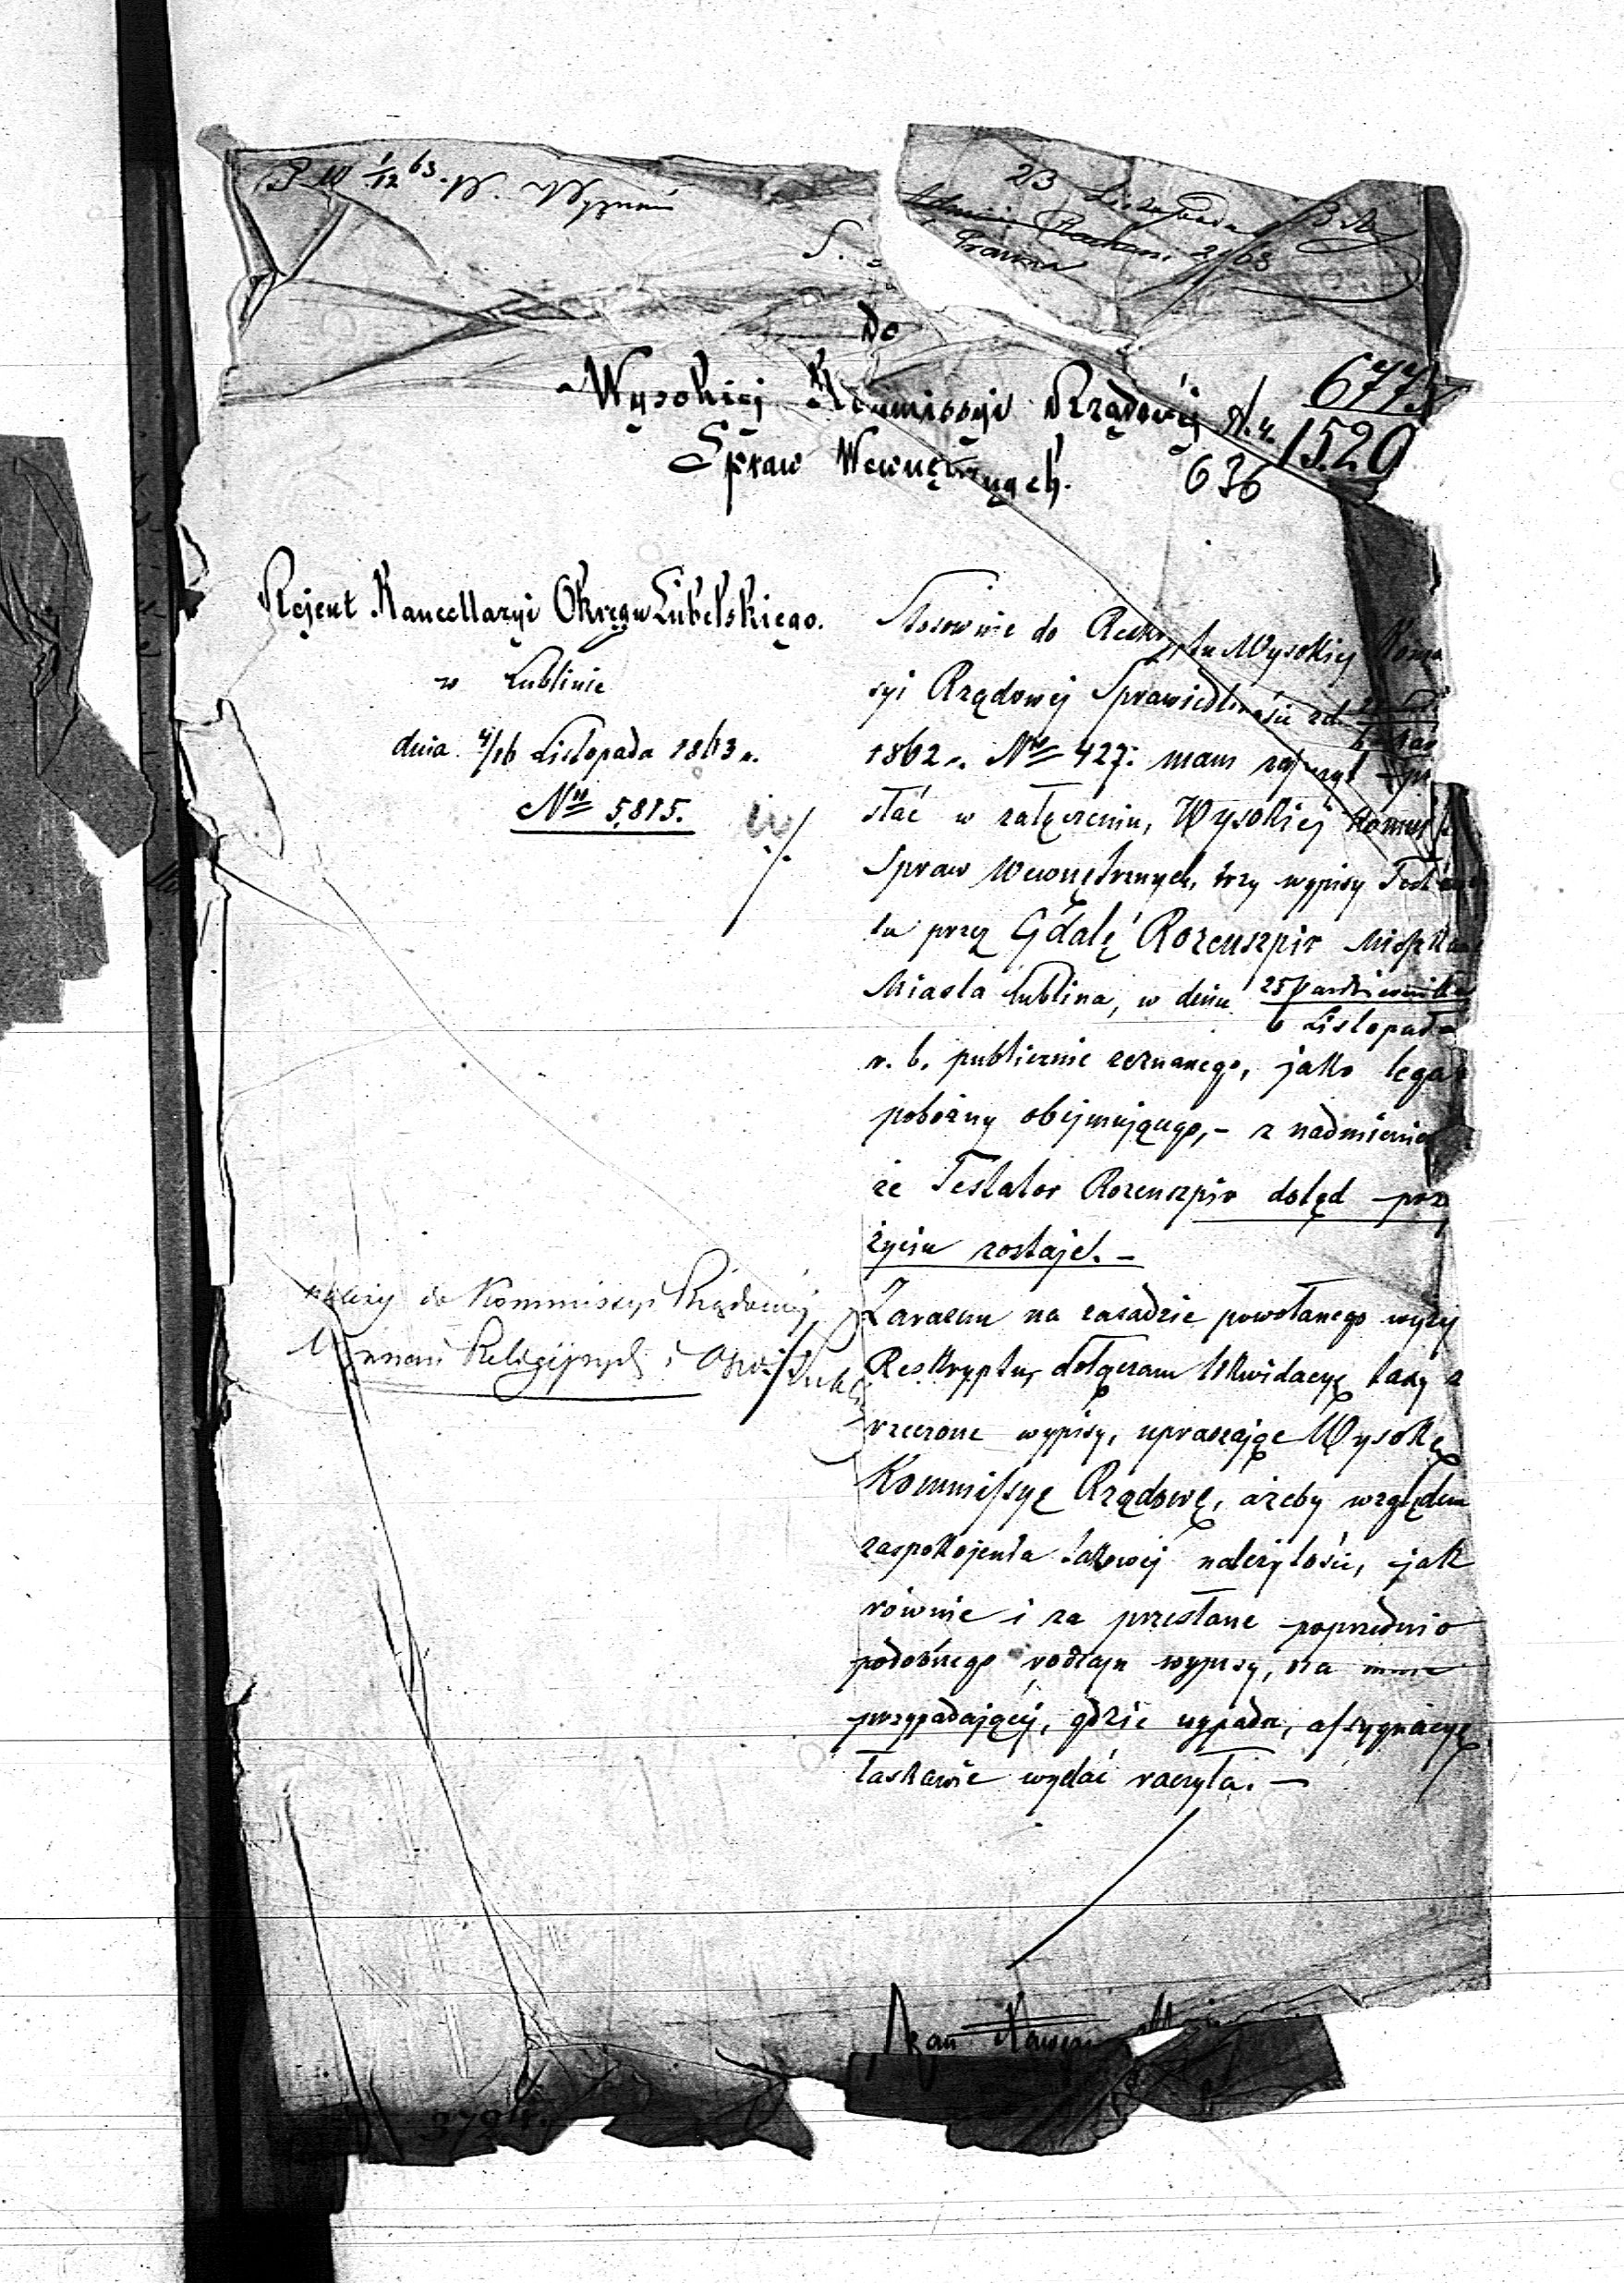 W. Wyznań
23 Listopada
63
Do
Wysokiej Kommissyi Rządowéj
Spraw Wewnętrznych.
677
1520
636
Rejent Kancellaryi Okręgu Lubelskiego.
w Lublinie
dnia 4/16 Listopada 1863 r.
No 5,815.
Stosownie do Reskryptu Wysokiej
syi Rządowej Sprawiedliwości z d.
1862 r. No 427. mam zaszczyt
słać w załączeniu, Wysokiej
Spraw Wewnętrznych, trzy wypisy
tu przez Gdalę Rozenszpir
Miasta Lublina, w dniu 25 Października
6 Listopada
r. b. publicznie zeznanego, jako legat
pobożny obejmującego, - z nadmienie
że Testator Rozenszpir dotąd przy
życiu zostaje. -
Zarazem na zasadzie powołanego wyżej
Reskryptu, dołączam likwidacyę taxy z
rzeczone wypisy, upraszając Wysoką
Kommissyę Rządową, ażeby względem
zaspokojenia takowej należytości, jak
równie i za przesłane poprzednio
podobnego rodzaju wypisy, na mnie
przypadającej, gdzie wypada, assygnacyę
łaskawie wydać raczyła. -
należy do Kommissyi Rządowej
Wyznań Religijnych i Oświ. Publ.
Jan
3724